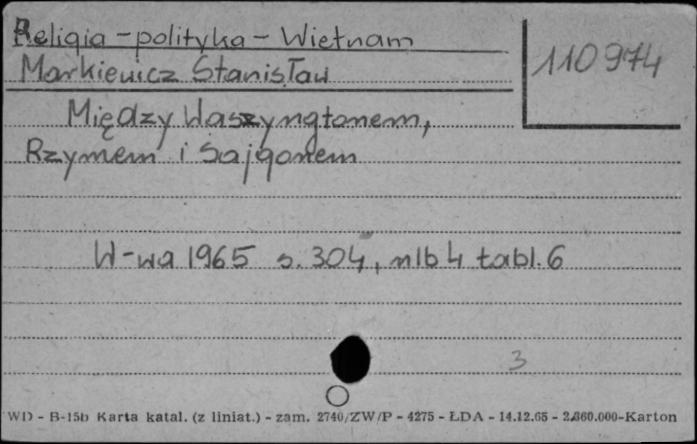 Religia - polityka - Wietnam
110974
Markiewicz Stanisław
Między Waszyngtonem,
Rzymem i Sajgonem
W-wa 1965 s. 304, nlb 4 tabl. 6
3
WD - B-15b Karta katal. (z liniat.) - zam. 2740/ZW/P - 4275 - ŁDA - 14.12.65 - 2.360.000-Karton